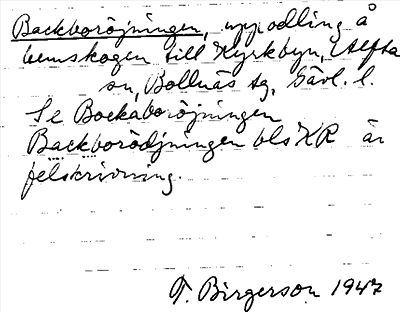 Backboröjningen, uppodling å
hemskogen till Kyrkbyn, Alfta
sn, Bollnäs tg, Gävl. l.
Se Bockaboröjningen
Backborödjningen bls KR är
felskrivning.
T. Birgerson 1947